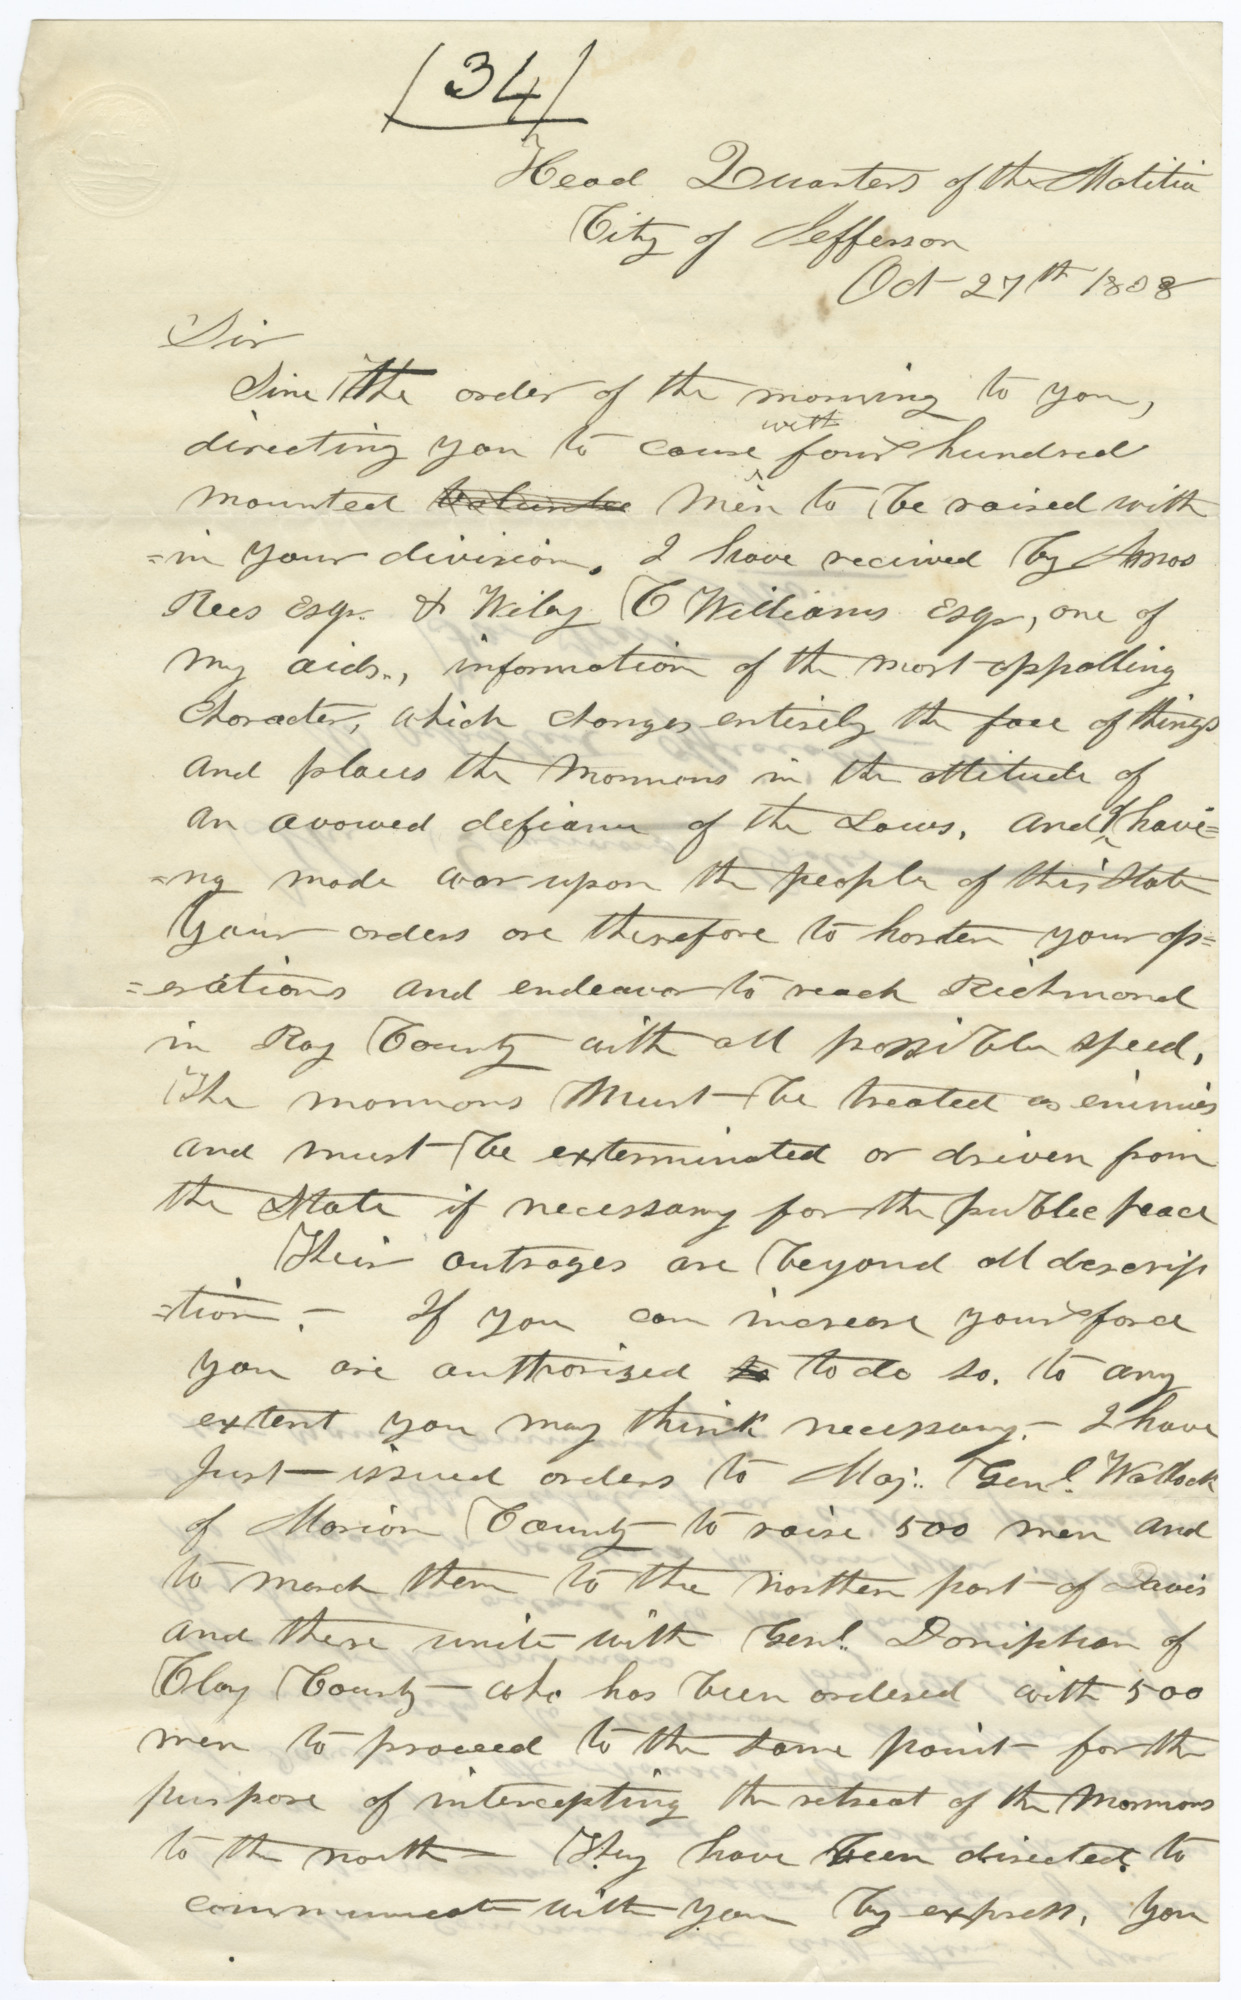 (34)
Head Quarters of the Militia
City of Jefferson
Oct 27th 1838
Sir
Sinc the order of the morning to you,
directing you to cause four hundred
with
mounted Voluntee men to be raised with
=in your division. I have received by Amos
Rees Esqr. & Wiley C Williams Esqr, one of
my aids., information of the most appalling
Character, which changes entirely the face of things
and places the Mormons in the attitude of
an avowed defiance of the Laws, and of have=
=ng made war upon the people of this State
Your orders are therefore to hasten your op=
=erations and endeavor to reach Richmond
in Ray County with all possible speed,
The mormons Must be treated as enimies
and must be exterminated or driven from
the State if necessary for the public peace
Their outrages are beyond all descrip
=tion. - If you can increase your force
you are authorised to to do so. to any
extent you may think necessary. - I have
Just issued orders to Maj. Genl. Wallock
of Marion County to raise 500 men and
to march them to the northern part of Davis
and there unite with Genl. Doniphan of
Clay County who has been ordered with 500
men to proceed to the same point for the
purpose of intercepting the retreat of the Mormons
to the north - They have been directed to
communicate with you by express, You